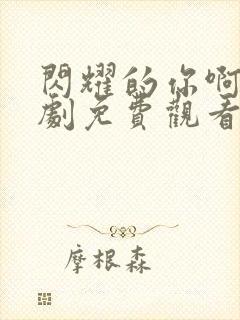 閃耀的你啊
劇免費觀看
摩根森